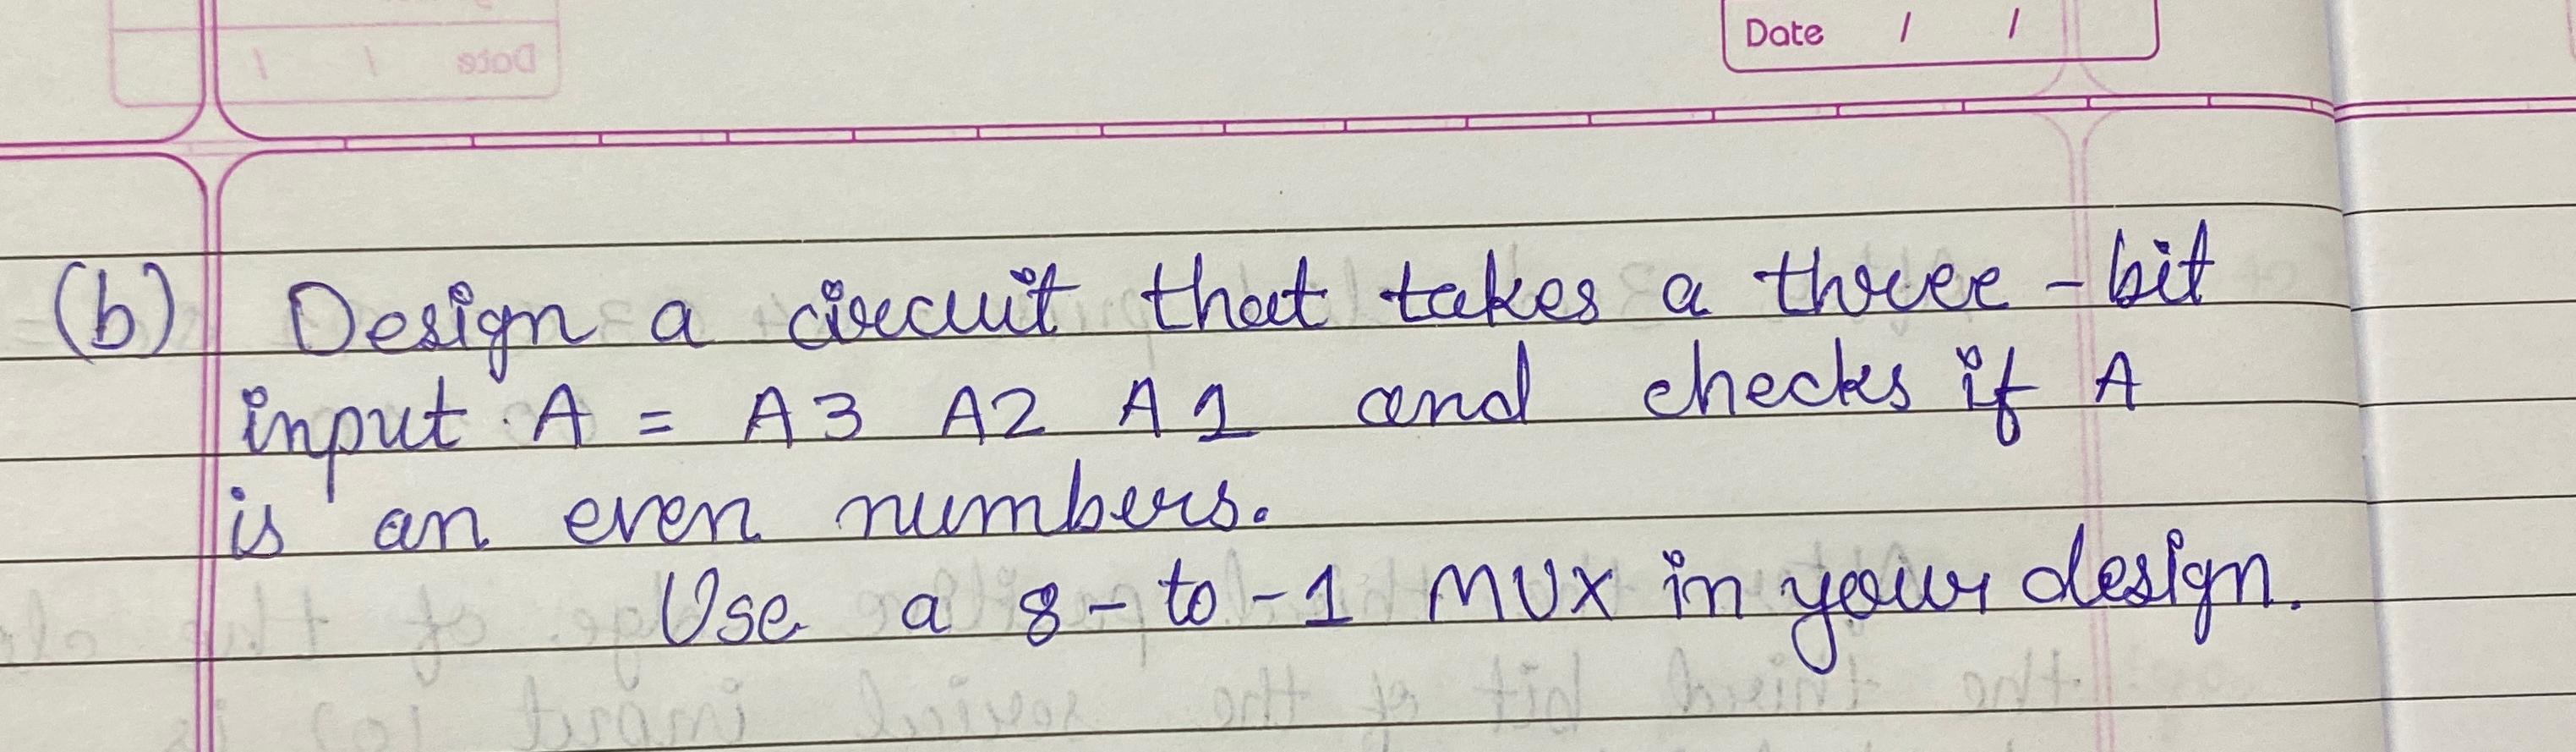 Date / /
(b) Design a circuit that takes a three-bit
input A = A3 A2 A1 and checks if A
is an even numbers.
Use a 8-to-1 MUX in your design.